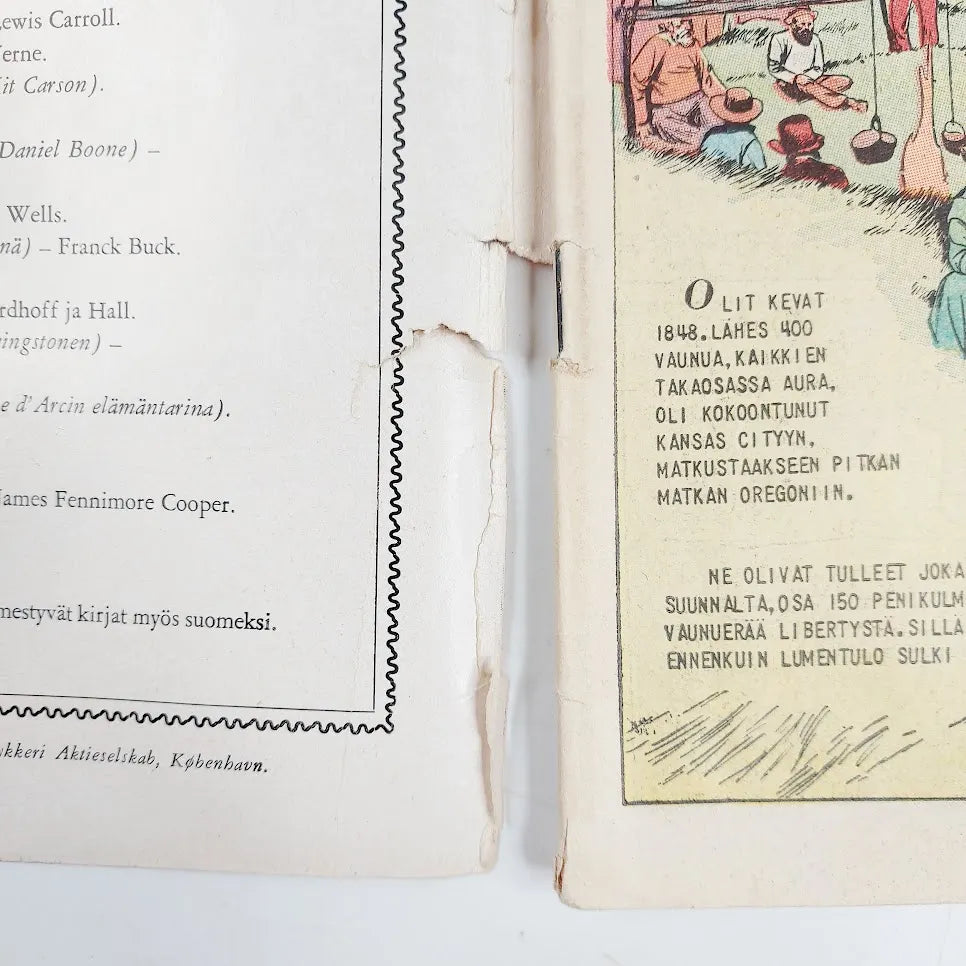 ewis Carroll.
erne.
it Carson).
Daniel Boone) –
Wells.
nä) – Franck Buck.
rdhoff ja Hall.
ingstonen) –
e d'Arcin elämäntarina).
James Fennimore Cooper.
mestyvät kirjat myös suomeksi.
kkeri Aktieselskab, København.
OLIT KEVAT
1848. LÄHES 400
VAUNUA, KAIKKIEN
TAKAOSASSA AURA,
OLI KOKOONTUNUT
KANSAS CITYYN,
MATKUSTAAKSEEN PITKAN
MATKAN OREGONIIN.
NE OLIVAT TULLEET JOKA
SUUNNALTA, OSA 150 PENIKULM
VAUNUERÄÄ LIBERTYSTÄ. SILLÄ
ENNENKUIN LUMENTULO SULKI